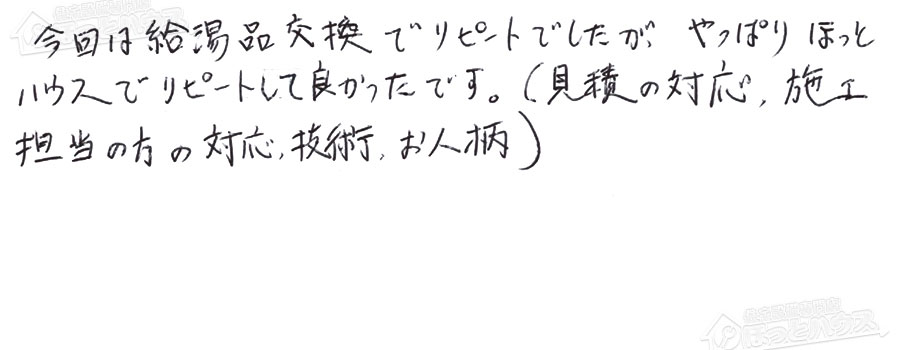 今回は給湯品交換でリピートでしたが、やっぱりほっと
ハウスでリピートして良かったです。(見積の対応,施工
担当の方の対応,技術,お人柄)
ほっとハウス